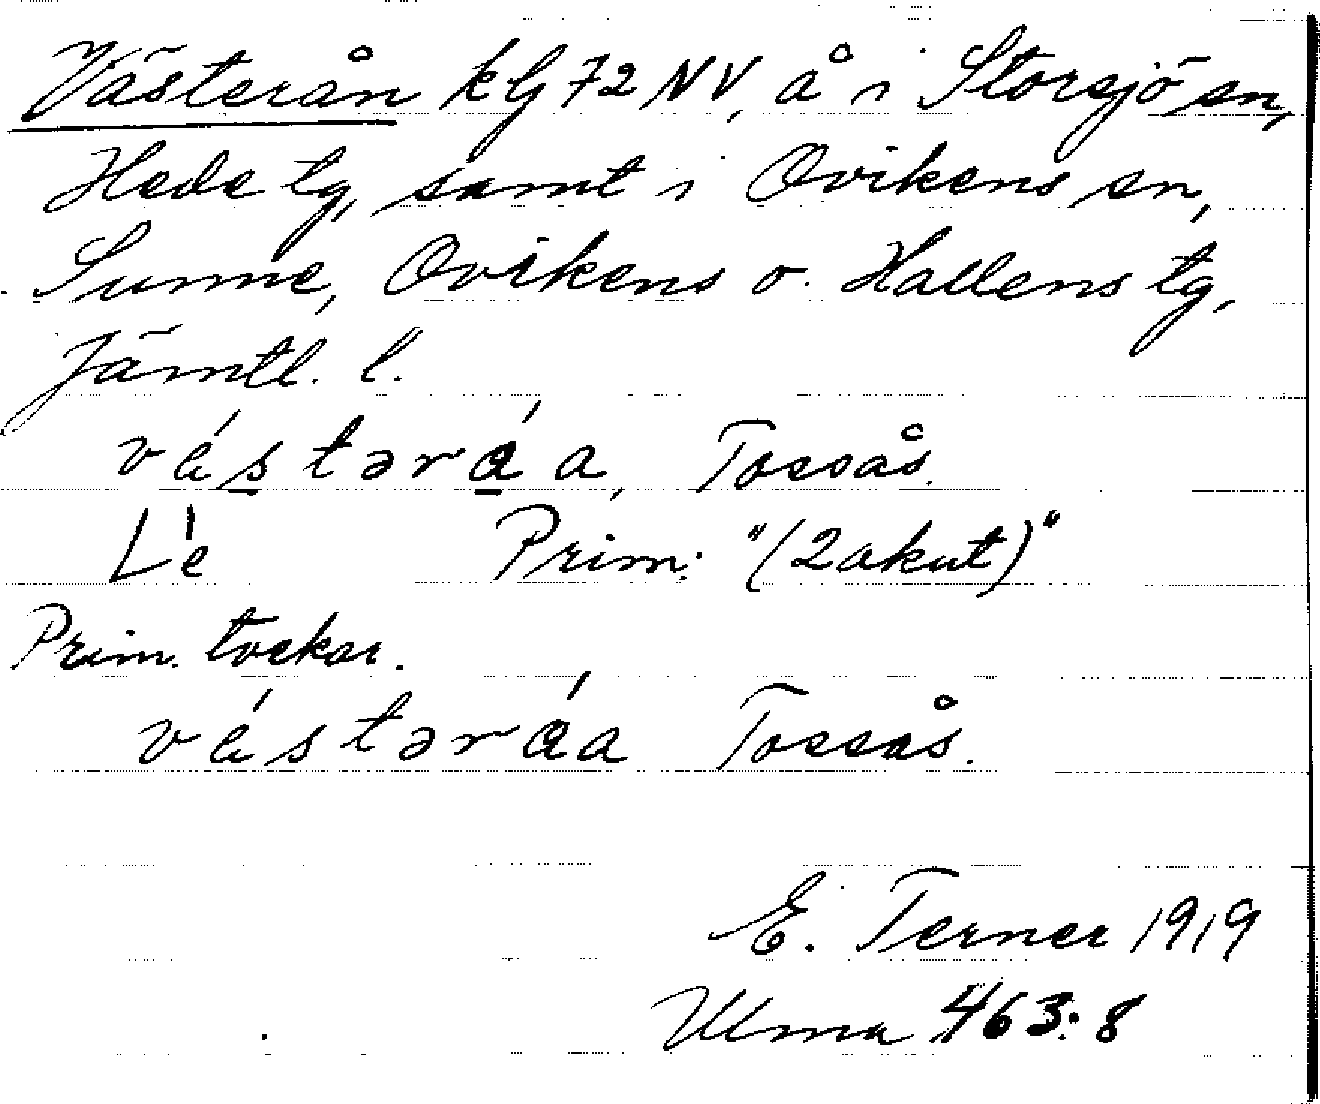 Västerån kG 72 NV, å i Storsjö sn,
Hede tg, samt i Ovikens sn,
Sunne, Ovikens o. Hallens tg,
Jämtl. l.
vástəráa, Tossås.
Lè Prim: "(2akut)"
Prim. tveksr.
vástəráa Tossås.
E. Terner 1919
Ulma 463:8